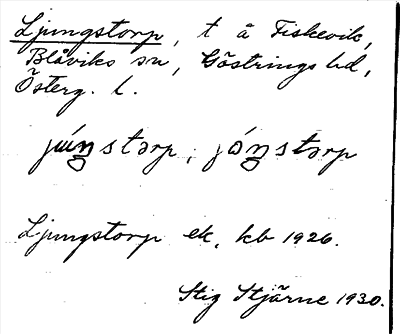 Ljungstorp, t å Fiskevik,
Blåviks sn, Göstrings hd,
Österg. l.
júŋstorp, jóŋstorp
Ljungstorp ek. kb 1926.
Stig Stjärne 1930.